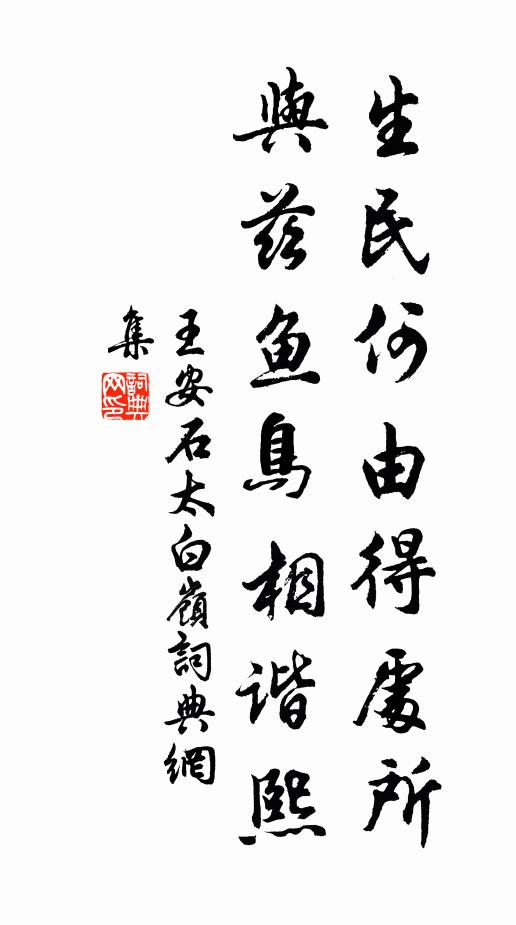 生民何由得處所
與茲鱼鳥相谐熙
王安石太白嶺詞典網
集
詞典网印